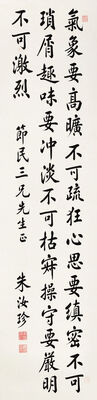 氣象要高曠不可疏狂心思要縝密不可
瑣屑趣味要冲淡不可枯寂操守要嚴明
不可激烈
節民三兄先生正
朱汝珍